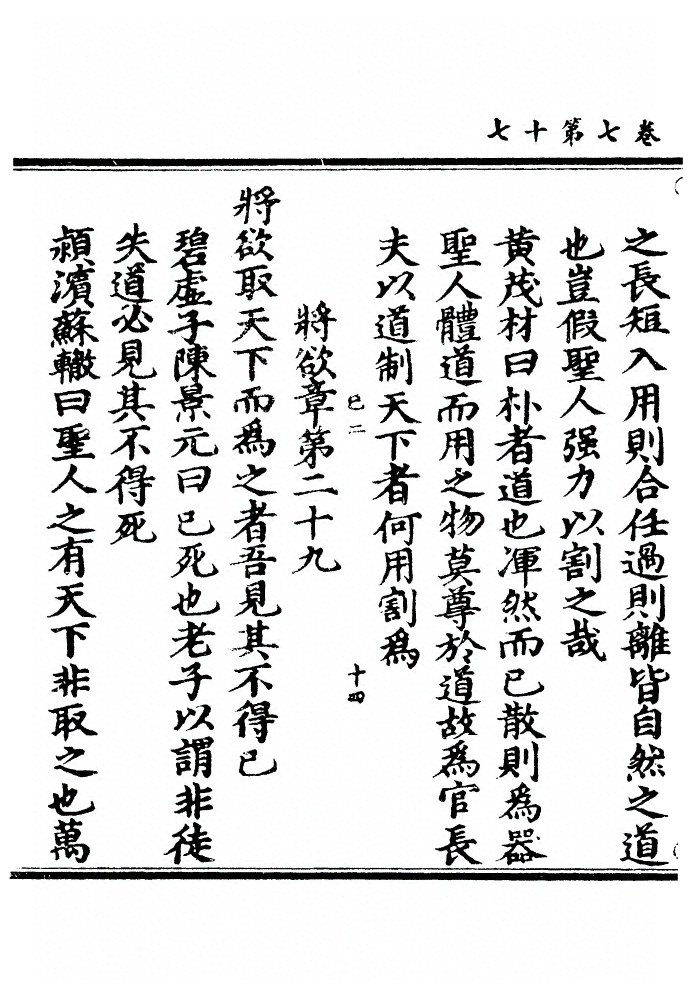 卷七第十七
之長短入用則合任過則離皆自然之道
也豈假聖人强力以割之哉
黄茂材曰朴者道也渾然而已散則爲器
聖人體道而用之物莫尊於道故爲官長
夫以道制天下者何用割爲
巳二
十四
將欲章第二十九
將欲取天下而爲之者吾見其不得已
碧虛子陳景元曰已死也老子以謂非徒
失道必見其不得死
潁濱蘇轍曰聖人之有天下非取之也萬